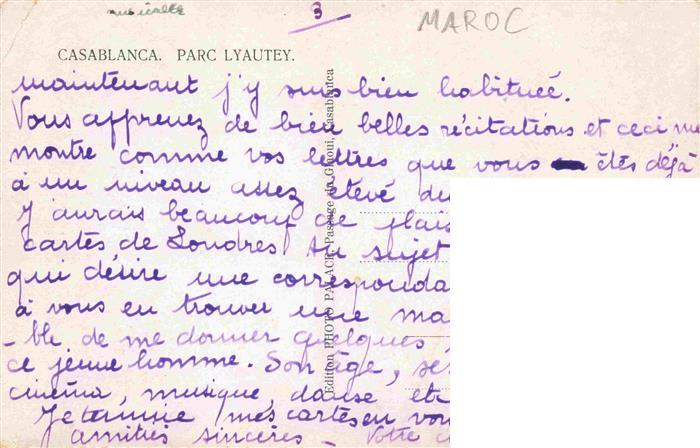 musicale
3
MAROC
CASABLANCA. PARC LYAUTEY.
maintenant j'y suis bien habituée.
Vous apprenez de bien belles récitations et ceci me
montre comme vos lettres que vous êtes déjà
à un niveau assez élevé
J'aurais beaucoup de
cartes de Londres. Au sujet
qui désire une
à vous en trouver une
-ble de me donner quelques
ce jeune homme. Son âge,
cinéma, musique, danse etc
Je termine mes cartes en
amitiés sincères - Votre
Edition PHOTO PALACE, Passage du Glaoui, Casablanca